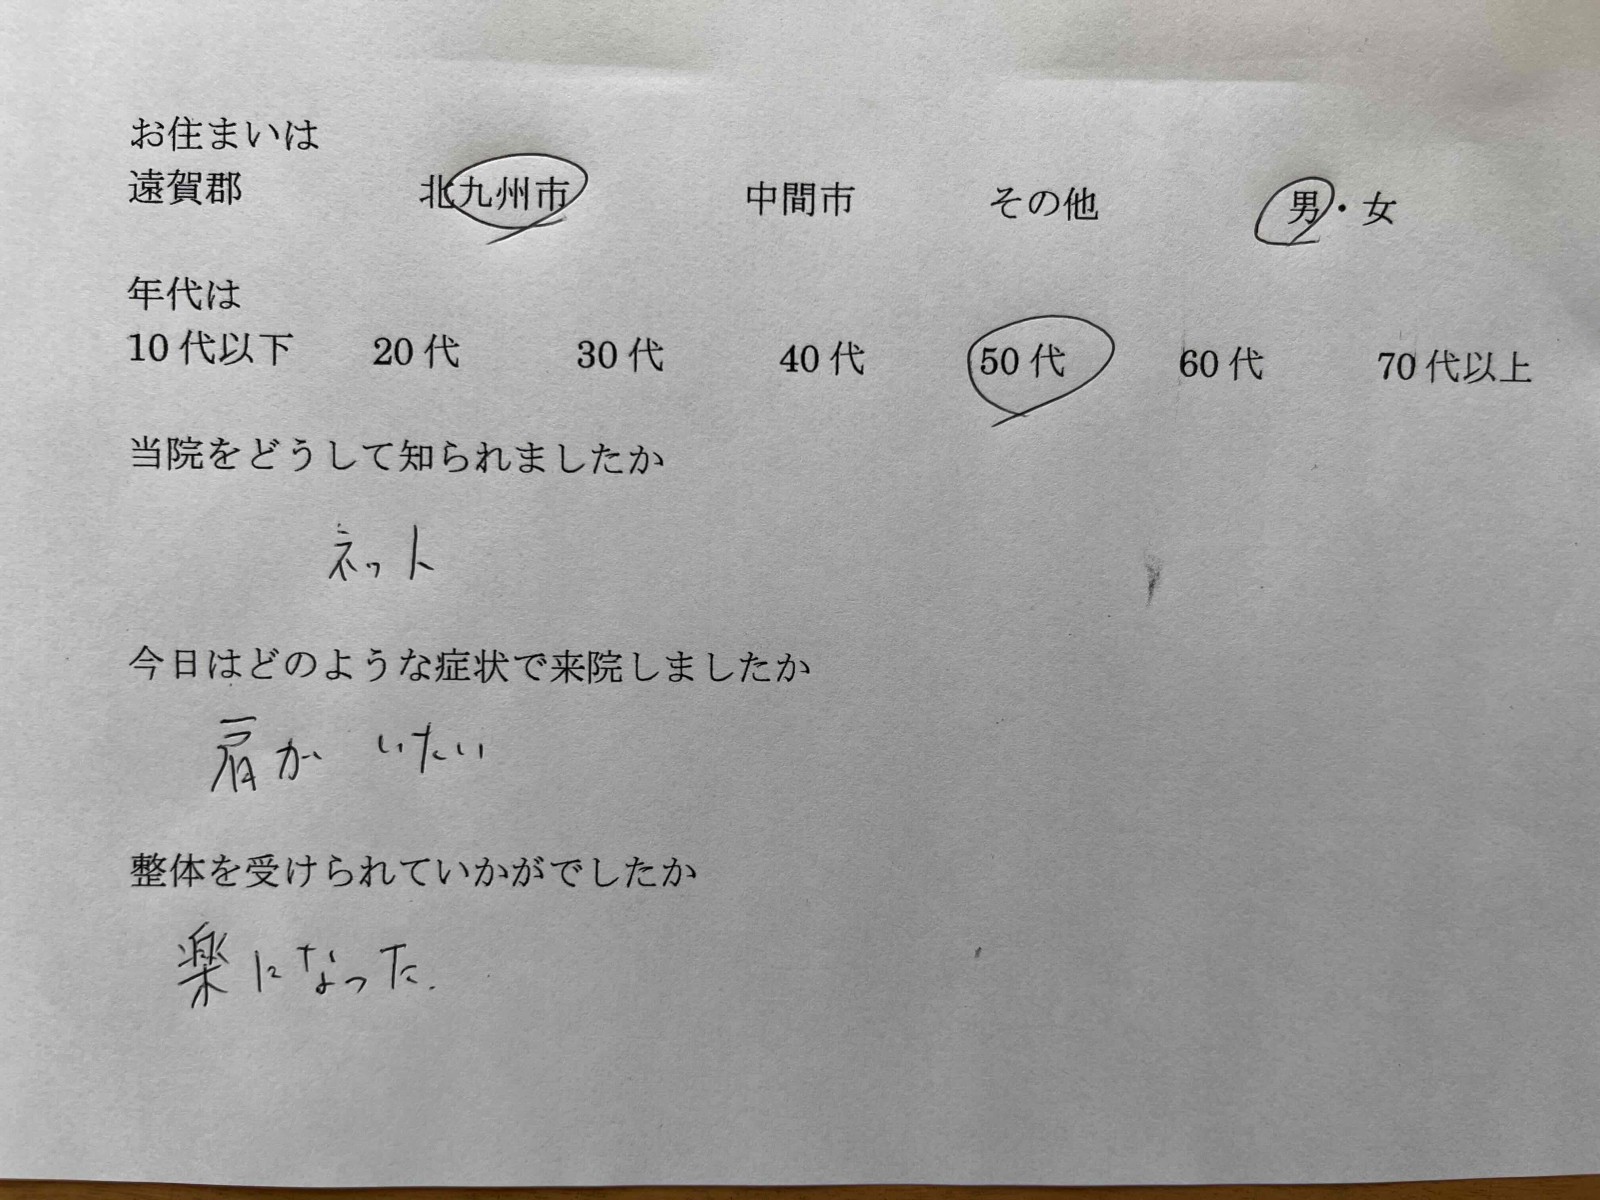 お住まいは
遠賀郡 北九州市 中間市 その他 男・女
年代は
10代以下 20代 30代 40代 50代 60代 70代以上
当院をどうして知られましたか
ネット
今日はどのような症状で来院しましたか
肩が いたい
整体を受けられていかがでしたか
楽になった.